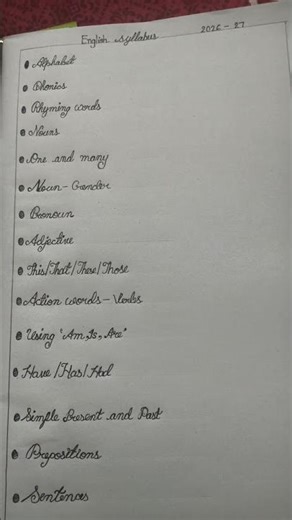 English Syllabus 2026-27
Alphabet
Phonics
Rhyming words
Nouns
One and many
Noun-Gender
Pronoun
Adjective
This/That/These/Those
Action words-Verbs
Using "Am, Is, Are"
Have/Has/Had
Simple Present and Past
Prepositions
Sentences